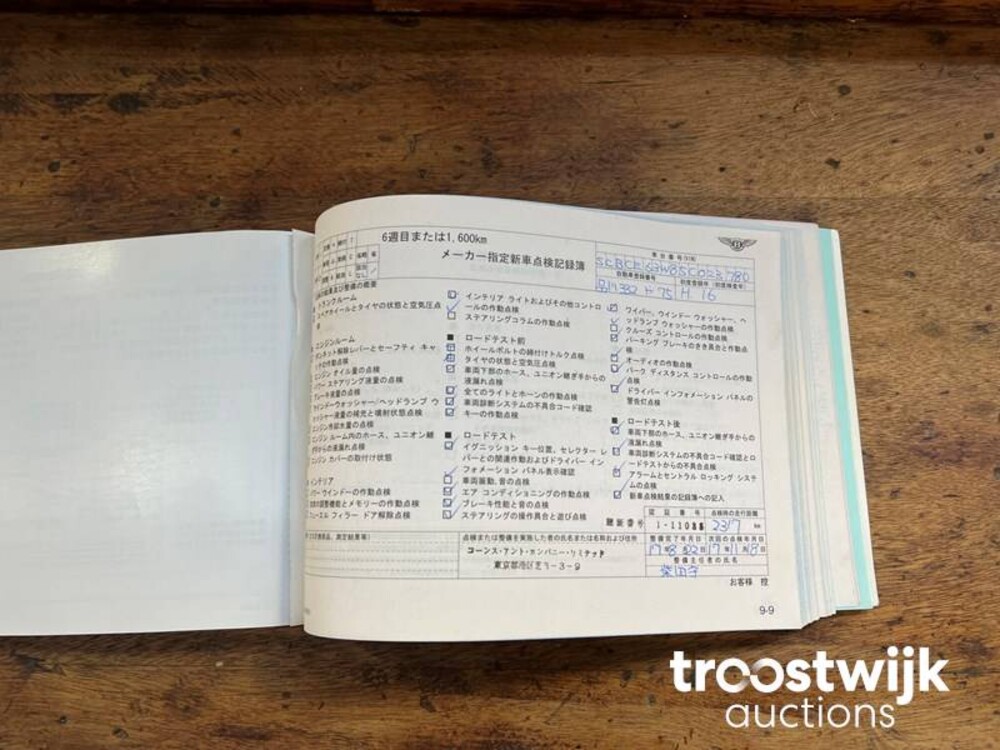 6週目または1,600km
メーカー指定新車点検記録簿
車台番号
SCBCE63W85C023780
自動車登録番号
初度登録年
332 H 75 H.16
トランクルーム
エンジンルーム
エンジン オイル量の点検
パワー ステアリング液量の点検
ブレーキ液量の点検
エンジン冷却水量の点検
エンジン ルーム内のホース、ユニオン継
ぎ手からの液漏れ点検
エンジン カバーの取付け状態
インテリア
パワーウインドーの作動点検
フューエル フィラー ドア解除点検
インテリア ライトおよびその他コントロ
ールの作動点検
ステアリングコラムの作動点検
■ ロードテスト前
ホイールボルトの締付けトルク点検
タイヤの状態と空気圧点検
車両下部のホース、ユニオン継ぎ手からの
液漏れ点検
全てのライトとホーンの作動点検
車両診断システムの不具合コード確認
キーの作動点検
■ ロードテスト
イグニッション キー位置、セレクター レ
バーとの関連作動およびドライバー イン
フォメーション パネル表示確認
車両振動、音の点検
エア コンディショニングの作動点検
ブレーキ性能と音の点検
ステアリングの操作具合と遊び点検
ワイパー、ウインドー ウォッシャー、ヘ
ッドランプ ウォッシャーの作動点検
クルーズ コントロールの作動点検
パーキング ブレーキのきき具合と作動点
検
オーディオの作動点検
パーク ディスタンス コントロールの作動
点検
ドライバー インフォメーション パネルの
警告灯点検
■ ロードテスト後
車両下部のホース、ユニオン継ぎ手からの
液漏れ点検
車両診断システムの不具合コード確認とロ
ードテストからの不具合点検
アラームとセントラル ロッキング システ
ムの点検
新車点検結果の記録簿への記入
認証番号
点検時の走行距離
1-110
2317 km
点検または整備を実施した者の氏名または名称および住所
コーンズ・アンド・カンパニー・リミテッド
東京都港区芝3-3-9
整備完了年月日
次回の点検年月日
17年8月22日
17年11月8日
整備主任者の氏名
柴田守
お客様 控
9-9
troostwijk
auctions